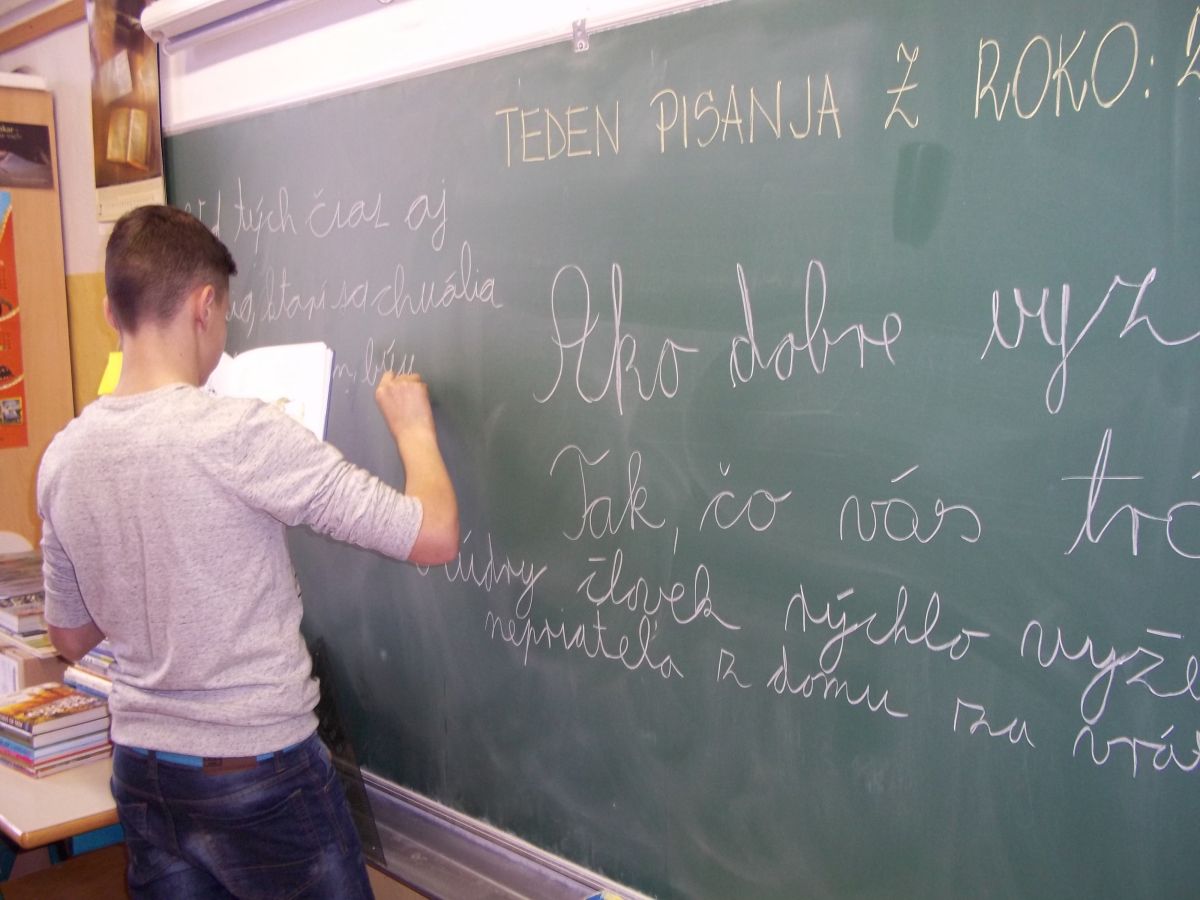 TEDEN PISANJA Z ROKO:
tých čias aj
starí sa chvália
Ako dobre vyz
Tak, čo vás trá
múdry človek rýchlo vyže
nepriateľa z domu za vrá